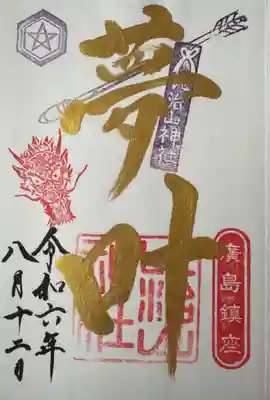 夢叶
比治山神社
廣島鎮座
令和六年
八月十二日